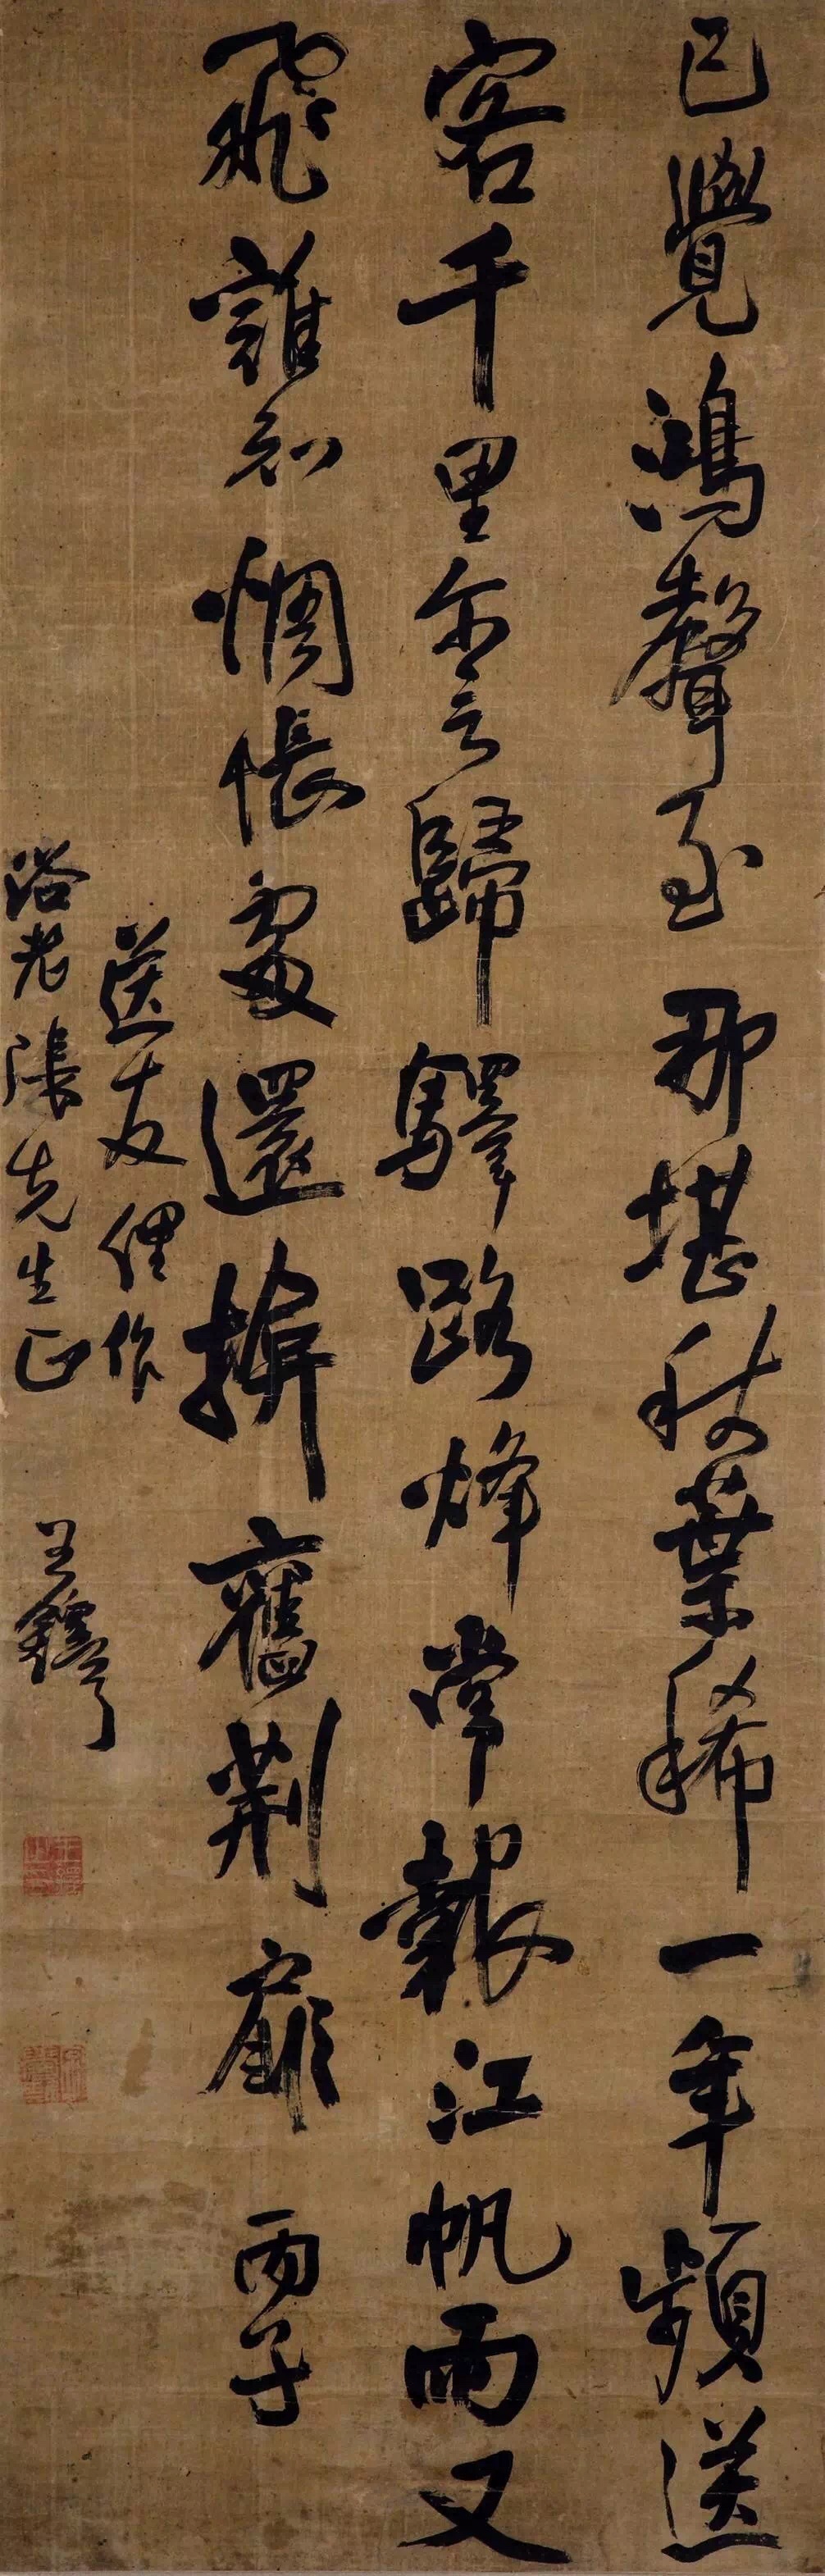 已覺鴻聲至那堪秋葉稀一年頻送
客千里尔言歸驛路烽常報江帆雨又
飛誰知惆悵處還揜舊荆扉 丙子
送友俚作
浴老張先生正
王鐸
王鐸之印